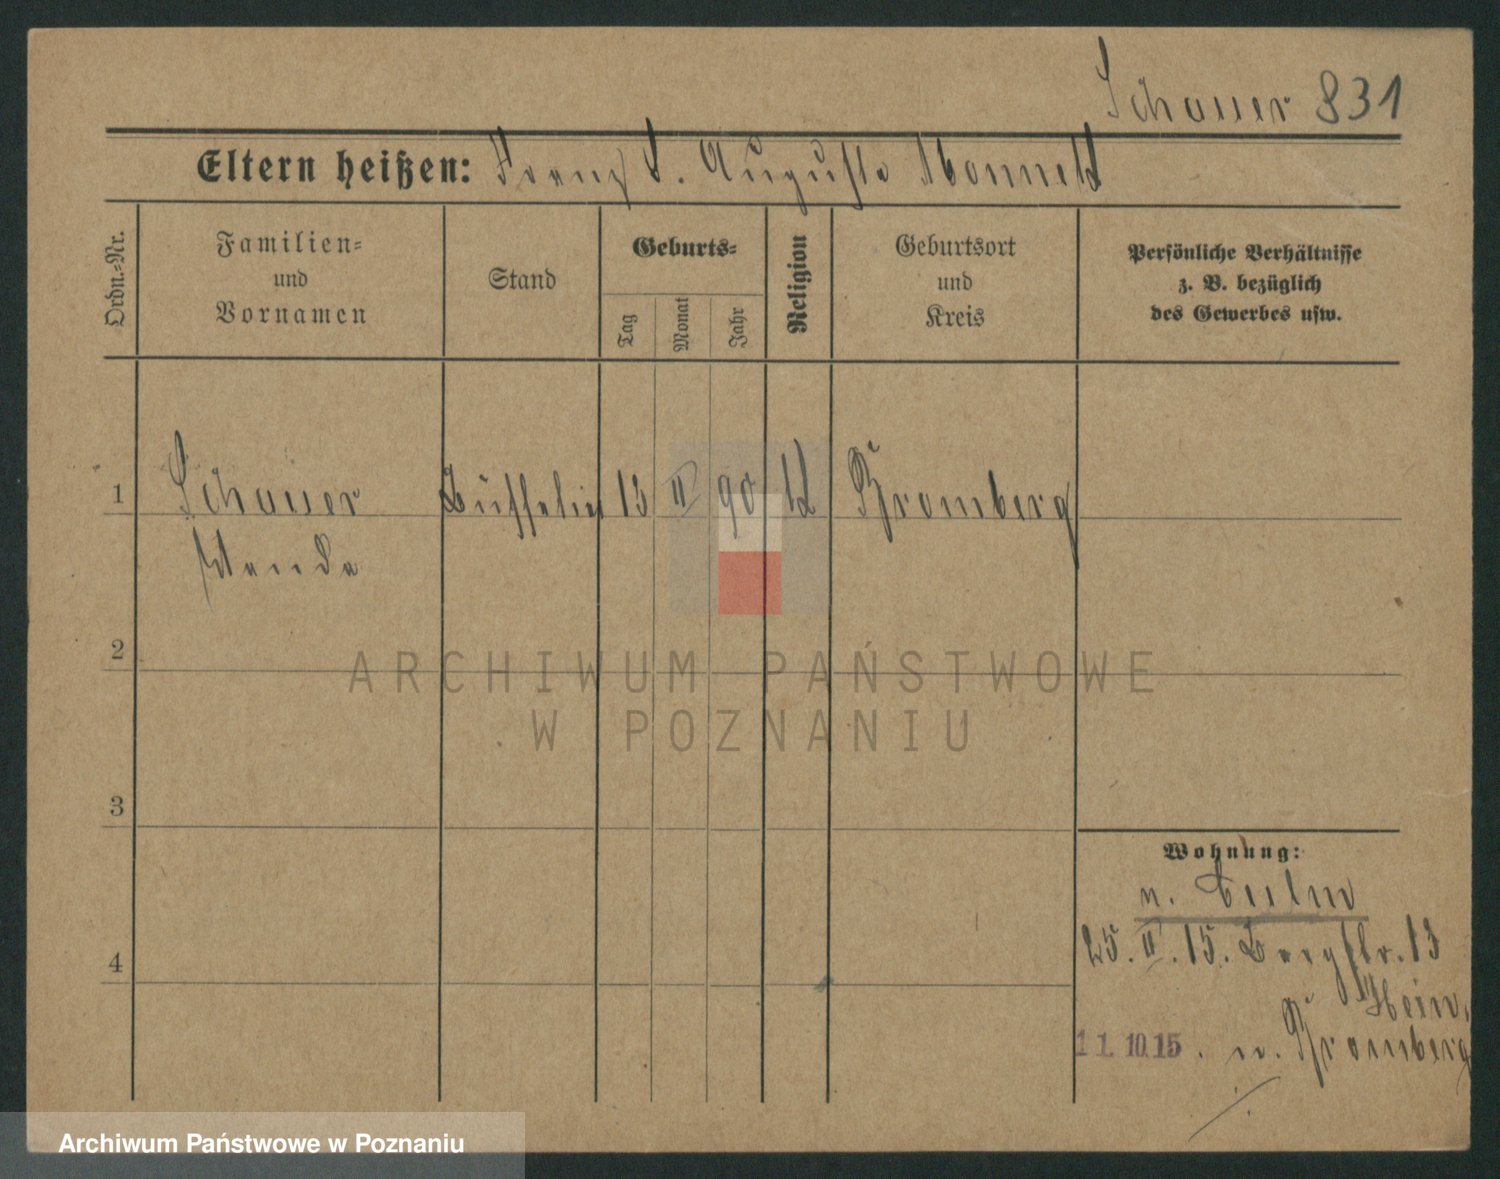 Schauer 831
Eltern heißen: Franz S. Auguste
Ordn.=Nr.
Familien=
und
Vornamen
Stand
Geburts=
Tag
Monat
Jahr
Religion
Geburtsort
und
Kreis
Persönliche Verhältnisse
z. B. bezüglich
des Gewerbes usw.
1
Schauer
Wanda
13 II 90
Bromberg
2
3
4
Wohnung:
n. Culm
25. II. 15. Bergstr. 13
11. 10. 15. n. Bromberg
ARCHIWUM PAŃSTWOWE
W POZNANIU
Archiwum Państwowe w Poznaniu